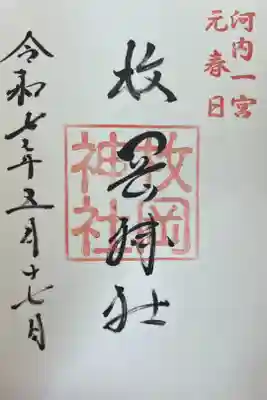 河内一宮
元春日
枚岡神社
枚岡神社
令和七年五月十七日